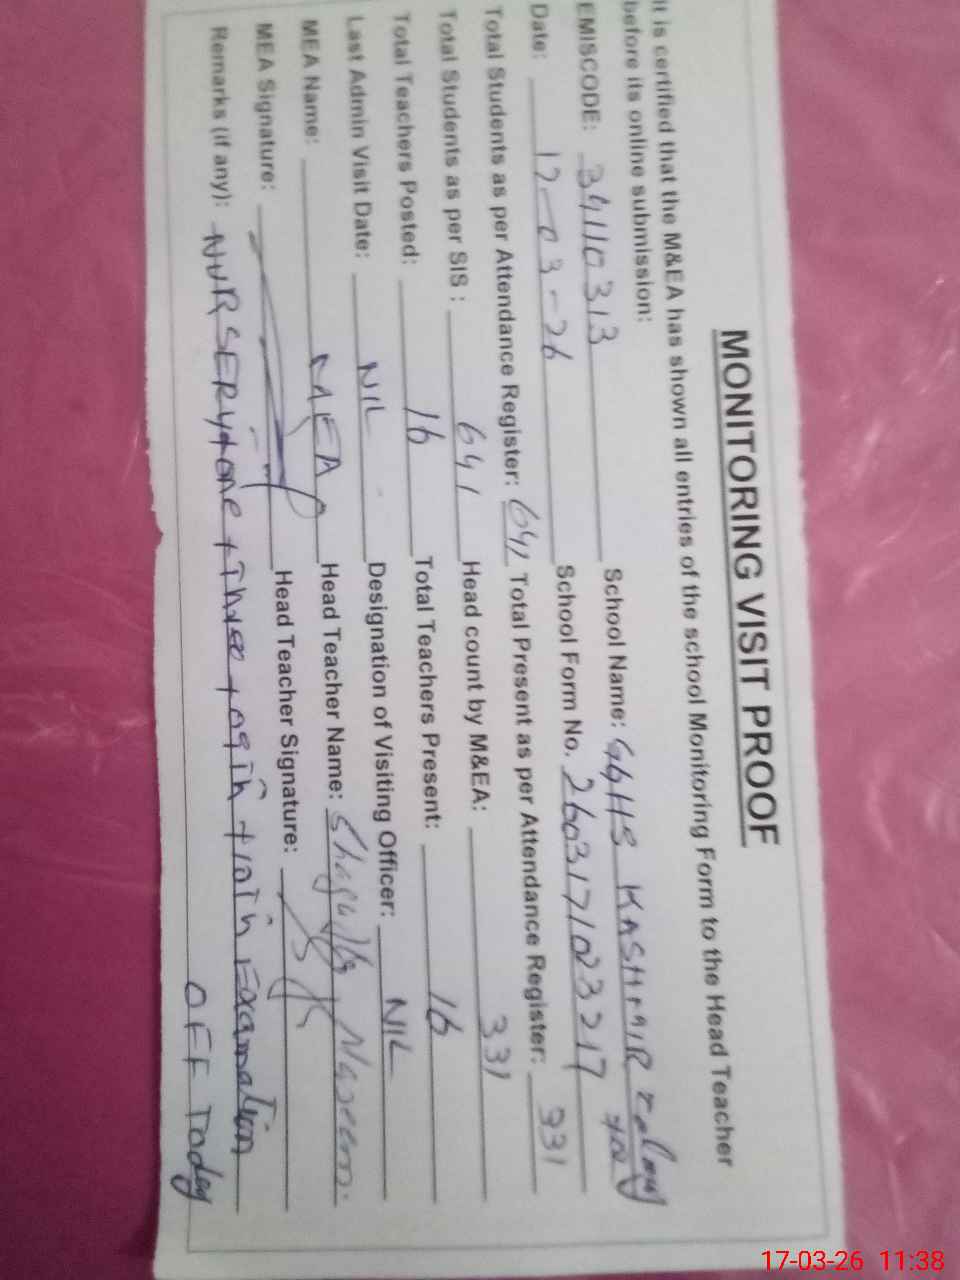 MONITORING VISIT PROOF
It is certified that the M&EA has shown all entries of the school Monitoring Form to the Head Teacher
before its online submission:
EMISCODE: 34110313 School Name: GGHS KASHMIR
Date: 17-03-26 School Form No. 2603171023217
Total Students as per Attendance Register: 641 Total Present as per Attendance Register: 331
Total Students as per SIS : 641 Head count by M&EA: 331
Total Teachers Posted: 16 Total Teachers Present: 16
Last Admin Visit Date: NIL Designation of Visiting Officer: NIL
MEA Name: MEA Head Teacher Name: Shagufta Naseem.
MEA Signature: Head Teacher Signature:
Remarks (if any): NURSERY+one+Three+9th+10th Examation
OFF Today
17-03-26 11:38